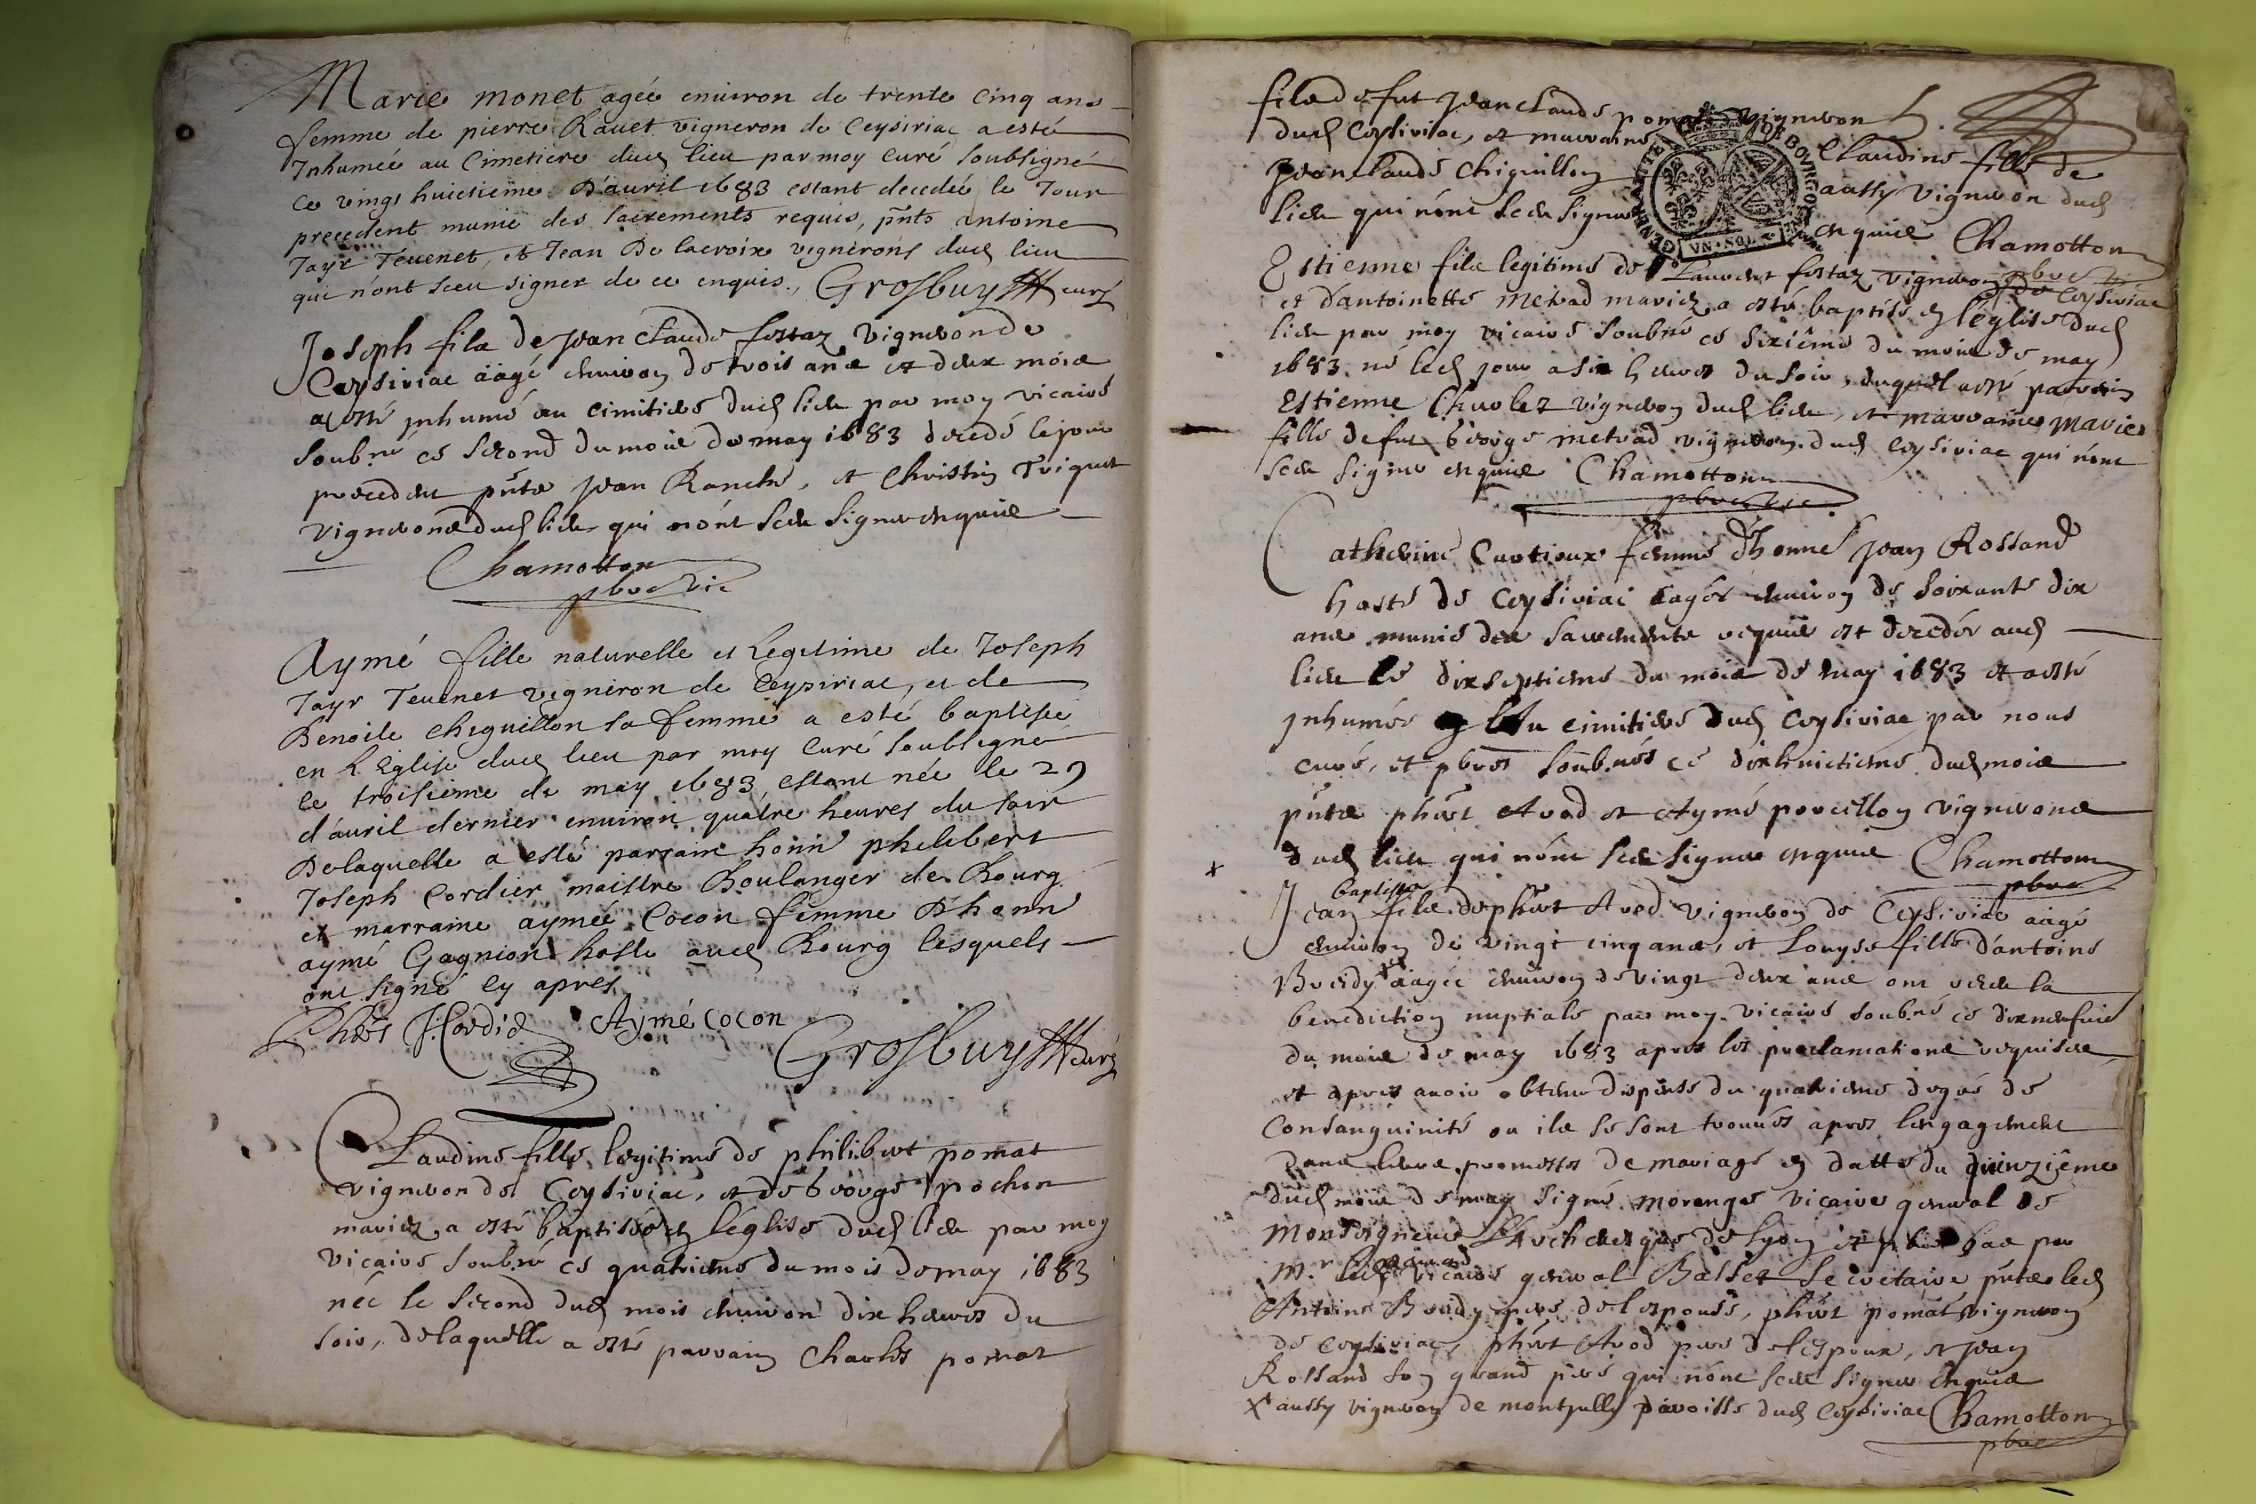 Marie monet agée enuiron de trente cinq ans
femme de pierre Rauet vigneron de Ceysiriac a esté
Inhumée au Cimetiere dud lieu par moy Curé soubsigné
ce vingt huictieme d'auril 1683 estant decedée le Jour
precedent munie des sacrements requis, pnts antoine
Jayr Teuenet, et Jean De lacroix vignerons dud lieu
qui n'ont sceu signer de ce enquis., Grosbuy curé
Joseph fils de Jean Claude fostaz vigneron de
Ceysiriac aagé enuiron de trois ans et deux mois
a esté jnhumé au cimitiere dud lieu par moy vicaire
soubné ce second du mois de may 1683 decedé le jour
precedent pnts Jean Ranche, et Christin Triquet
vignerons dud lieu qui n'ont sceu signer enquis
Chamotton
pbre vic
Aymé fille naturelle et Legitime de Joseph
Jayr Teuenet vigneron de Ceysiriac, et de
Benoite Chiquillon sa femme a esté baptisée
en L'Eglise dud lieu par moy Curé soubsigné
ce troisieme de may 1683, estant née le 29
d'auril dernier enuiron quatre heures du soir
De laquelle a esté parrain honn philibert
Joseph Cordier maistre Boulanger de Bourg
et marraine aymée Cocon femme d'honn
aymé Gagnion hoste aud Bourg lesquels
ont signé cy apres
Phbt J Cordie Aymé cocon
Grosbuy curé
Claudine fille legitime de philibert pomat
vigneron de Ceysiriac, et de George pochon
mariez a esté baptisée en l'église dud lieu par moy
vicaire soubné ce quatrieme du mois de may 1683
née le second dud mois enuiron dix heures du
soir, de laquelle a esté parrain Charles pomat
fils de fut Jean Claude pomat vigneron
dud Ceysiriac, et marraine Claudine fille de
Jean Claude Chiquillon aussy vigneron dud
lieu qui n'ont sceu signer enquis Chamotton
pbre vic
GENERALITE DE BOVRGOGNE
Estienne fils legitime de Laurent fostaz vigneron de Ceysiriac
et d'antoinette metrad mariez a esté baptisé en l'église dud
lieu par moy vicaire soubné ce sixiême du mois de may
1683. né led jour a six heures du soir, duquel a esté parrain
Estienne Charlez vigneron dud lieu, et marraine Marie
fille de fut George metrad vigneron dud Ceysiriac qui n'ont
sceu signer enquis Chamotton
pbre vic.
Catherine Curtioux femme d'honn Jean Rolland
hoste de Ceysiriac aagée enuiron de soixante dix
ans munie des sacrements requis est decedée aud
lieu le dixseptieme du mois de may 1683 et a esté
jnhumée au cimitiere dud Ceysiriac par nous
curé, et pbres soubnés ce dixhuictieme dud mois
pnts phbert Avod et Aymé porcillon vignerons
dud lieu qui n'ont sceu signer enquis Chamotton
pbre
x Jean baptiste fils de phbert Avod vigneron de Ceysiriac aagé
enuiron de vingt cinq ans, et Louyse fille d'antoine
Boudy x aagée enuiron de vingt deux ans ont receu la
benediction nuptiale par moy vicaire soubné ce dixneufuie
du mois de may 1683 apres les proclamations requises
et apres auoir obtenu dispense du quatrieme degré de
Consanguinité ou ils se sont trouués apres l'engagement
dans leurs promesses de mariage en datte du quinziême
dud mois de may signé morange vicaire general de
Monseigneur l'Archeuesque de Lyon et plus bas par
mr. led vicaire general Basset secretaire pnts led
Antoine Boudy pere de l'espouse, phbert pomat vigneron
de Ceysiriac, phbert Avod pere de l'espoux, et Jean
Rolland son grand pere qui n'ont sceu signer enquis
x aussy vigneron de montjully parroisse dud Ceysiriac Chamotton
pbre